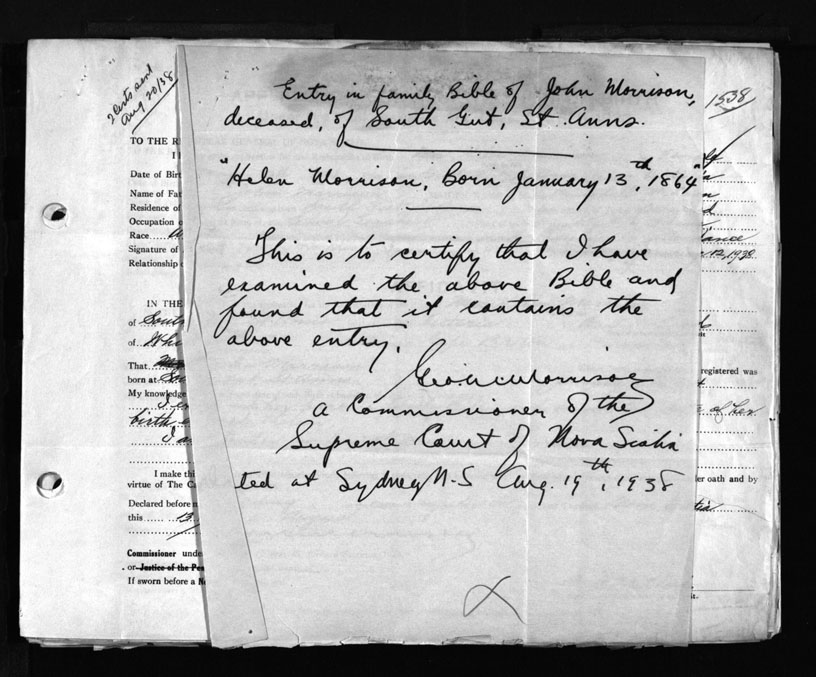 2 Certs sent
Aug 20/38
1538
Entry in family Bible of John Morrison,
deceased, of South Gut, St. Anns.
"Helen Morrison, Born January 13th, 1864"
This is to certify that I have
examined the above Bible and
found that it contains the
above entry.
Morrison
A Commissioner of the
Supreme Court of Nova Scotia
ted at Sydney N.S Aug. 19th, 1938
TO THE R
I
Date of Birt
Name of Fat
Residence of
Occupation o
Race
Signature of
Relationship
12, 1938
IN THE
of South
of
That
born at
My knowledge
registered was
birth
of her
I make thi
virtue of The Ca
er oath and by
Declared before m
this 13
Commissioner unde
or Justice of the Pea
If sworn before a N